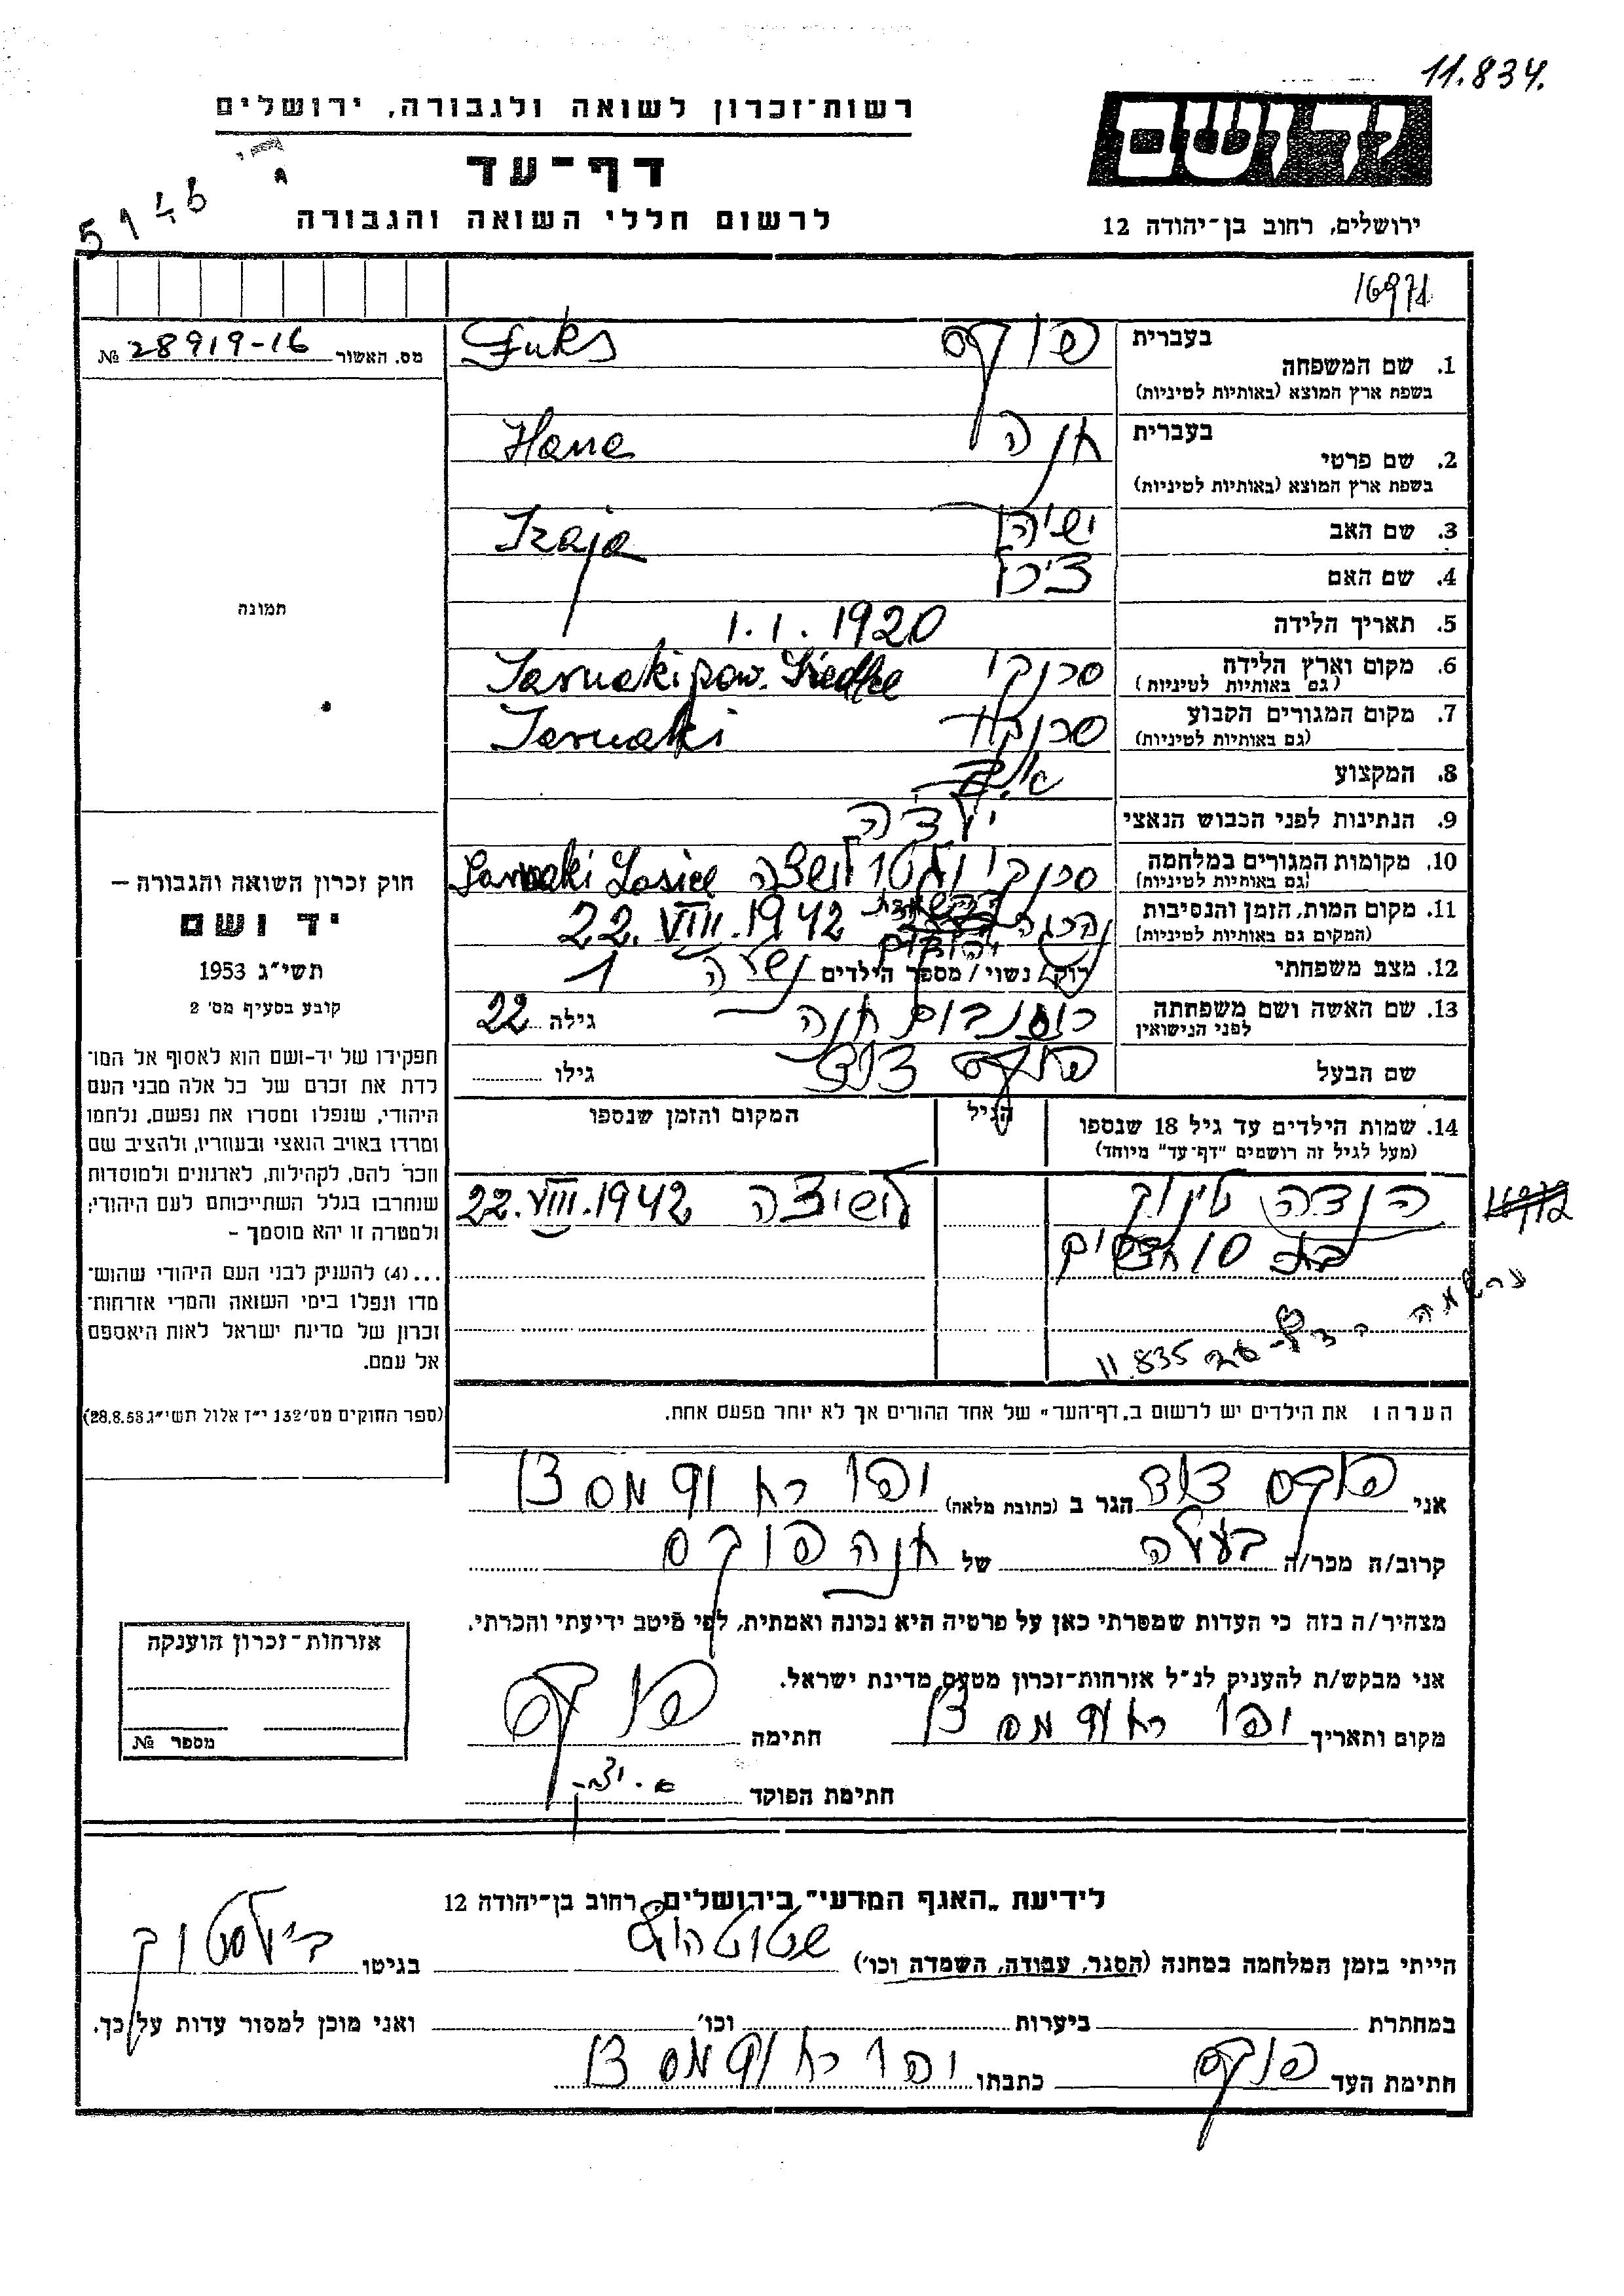 11.834.
רשות־זכרון לשואה ולגבורה, ירושלים
ידושם
דף־עד
לרשום חללי השואה והגבורה
ירושלים, רחוב בן־יהודה 12
16971
מס. האשור 28919-16 №
בעברית
1. שם המשפחה פוקס Fuks
בשפת ארץ המוצא (באותיות לטיניות)
בעברית
2. שם פרטי חנה Hana
בשפת ארץ המוצא (באותיות לטיניות)
3. שם האב ישיה Izaja
4. שם האם
תמונה
5. תאריך הלידה 1.1.1920
6. מקום וארץ הלידה סרנקי Sarnaki pow. Siedlce
(גם באותיות לטיניות)
7. מקום המגורים הקבוע סרנקי Sarnaki
(גם באותיות לטיניות)
8. המקצוע
9. הנתינות לפני הכבוש הנאצי
10. מקומות המגורים במלחמה סרנקי לושיצה Sarnaki Losice
(גם באותיות לטיניות)
11. מקום המות, הזמן והנסיבות 22.VIII.1942
(המקום גם באותיות לטיניות)
12. מצב משפחתי רוק/ נשוי / מספר הילדים 1
13. שם האשה ושם משפחתה רוזנבוים חנה גילה 22
לפני הנישואין
שם הבעל פוקס דוד גילו
14. שמות הילדים עד גיל 18 שנספו הגיל המקום והזמן שנספו
(מעל לגיל זה רושמים "דף־עד" מיוחד)
הנדה תינוק לושיצה 22.VIII.1942
בת 10 חדשים
11.835
הערה: את הילדים יש לרשום ב„דף־העד" של אחד ההורים אך לא יותר מפעם אחת.
חוק זכרון השואה והגבורה —
יד ושם
תשי״ג 1953
קובע בסעיף מס׳ 2
תפקידו של יד-ושם הוא לאסוף אל המו־
לדת את זכרם של כל אלה מבני העם
היהודי, שנפלו ומסרו את נפשם, נלחמו
ומרדו באויב הנאצי ובעוזריו, ולהציב שם
וזכר להם, לקהילות, לארגונים ולמוסדות
שנחרבו בגלל השתייכותם לעם היהודי;
ולמטרה זו יהא מוסמך -
...(4) להעניק לבני העם היהודי שהוש־
מדו ונפלו בימי השואה והמרי אזרחות־
זכרון של מדינת ישראל לאות היאספם
אל עמם.
(ספר החוקים מס׳ 132 י״ז אלול תשי״ג 28.8.53)
אני פוקס דוד הגר ב (כתובת מלאה) יפו
קרוב/ה מכר/ה בעלה של חנה פוקס
מצהיר/ה בזה כי העדות שמסרתי כאן על פרטיה היא נכונה ואמתית, לפי מיטב ידיעתי והכרתי.
אני מבקש/ת להעניק לנ״ל אזרחות־זכרון מטעם מדינת ישראל.
מקום ותאריך יפו חתימה פוקס
חתימת הפוקד
אזרחות־זכרון הוענקה
מספר №
לידיעת „האגף המדעי" בירושלים, רחוב בן־יהודה 12
הייתי בזמן המלחמה במחנה (הסגר, עבודה, השמדה וכו׳) שטוטהוף בגיטו ביאלסטוק
במחתרת ביערות וכו׳ ואני מוכן למסור עדות על כך.
חתימת העד פוקס כתבתו יפו